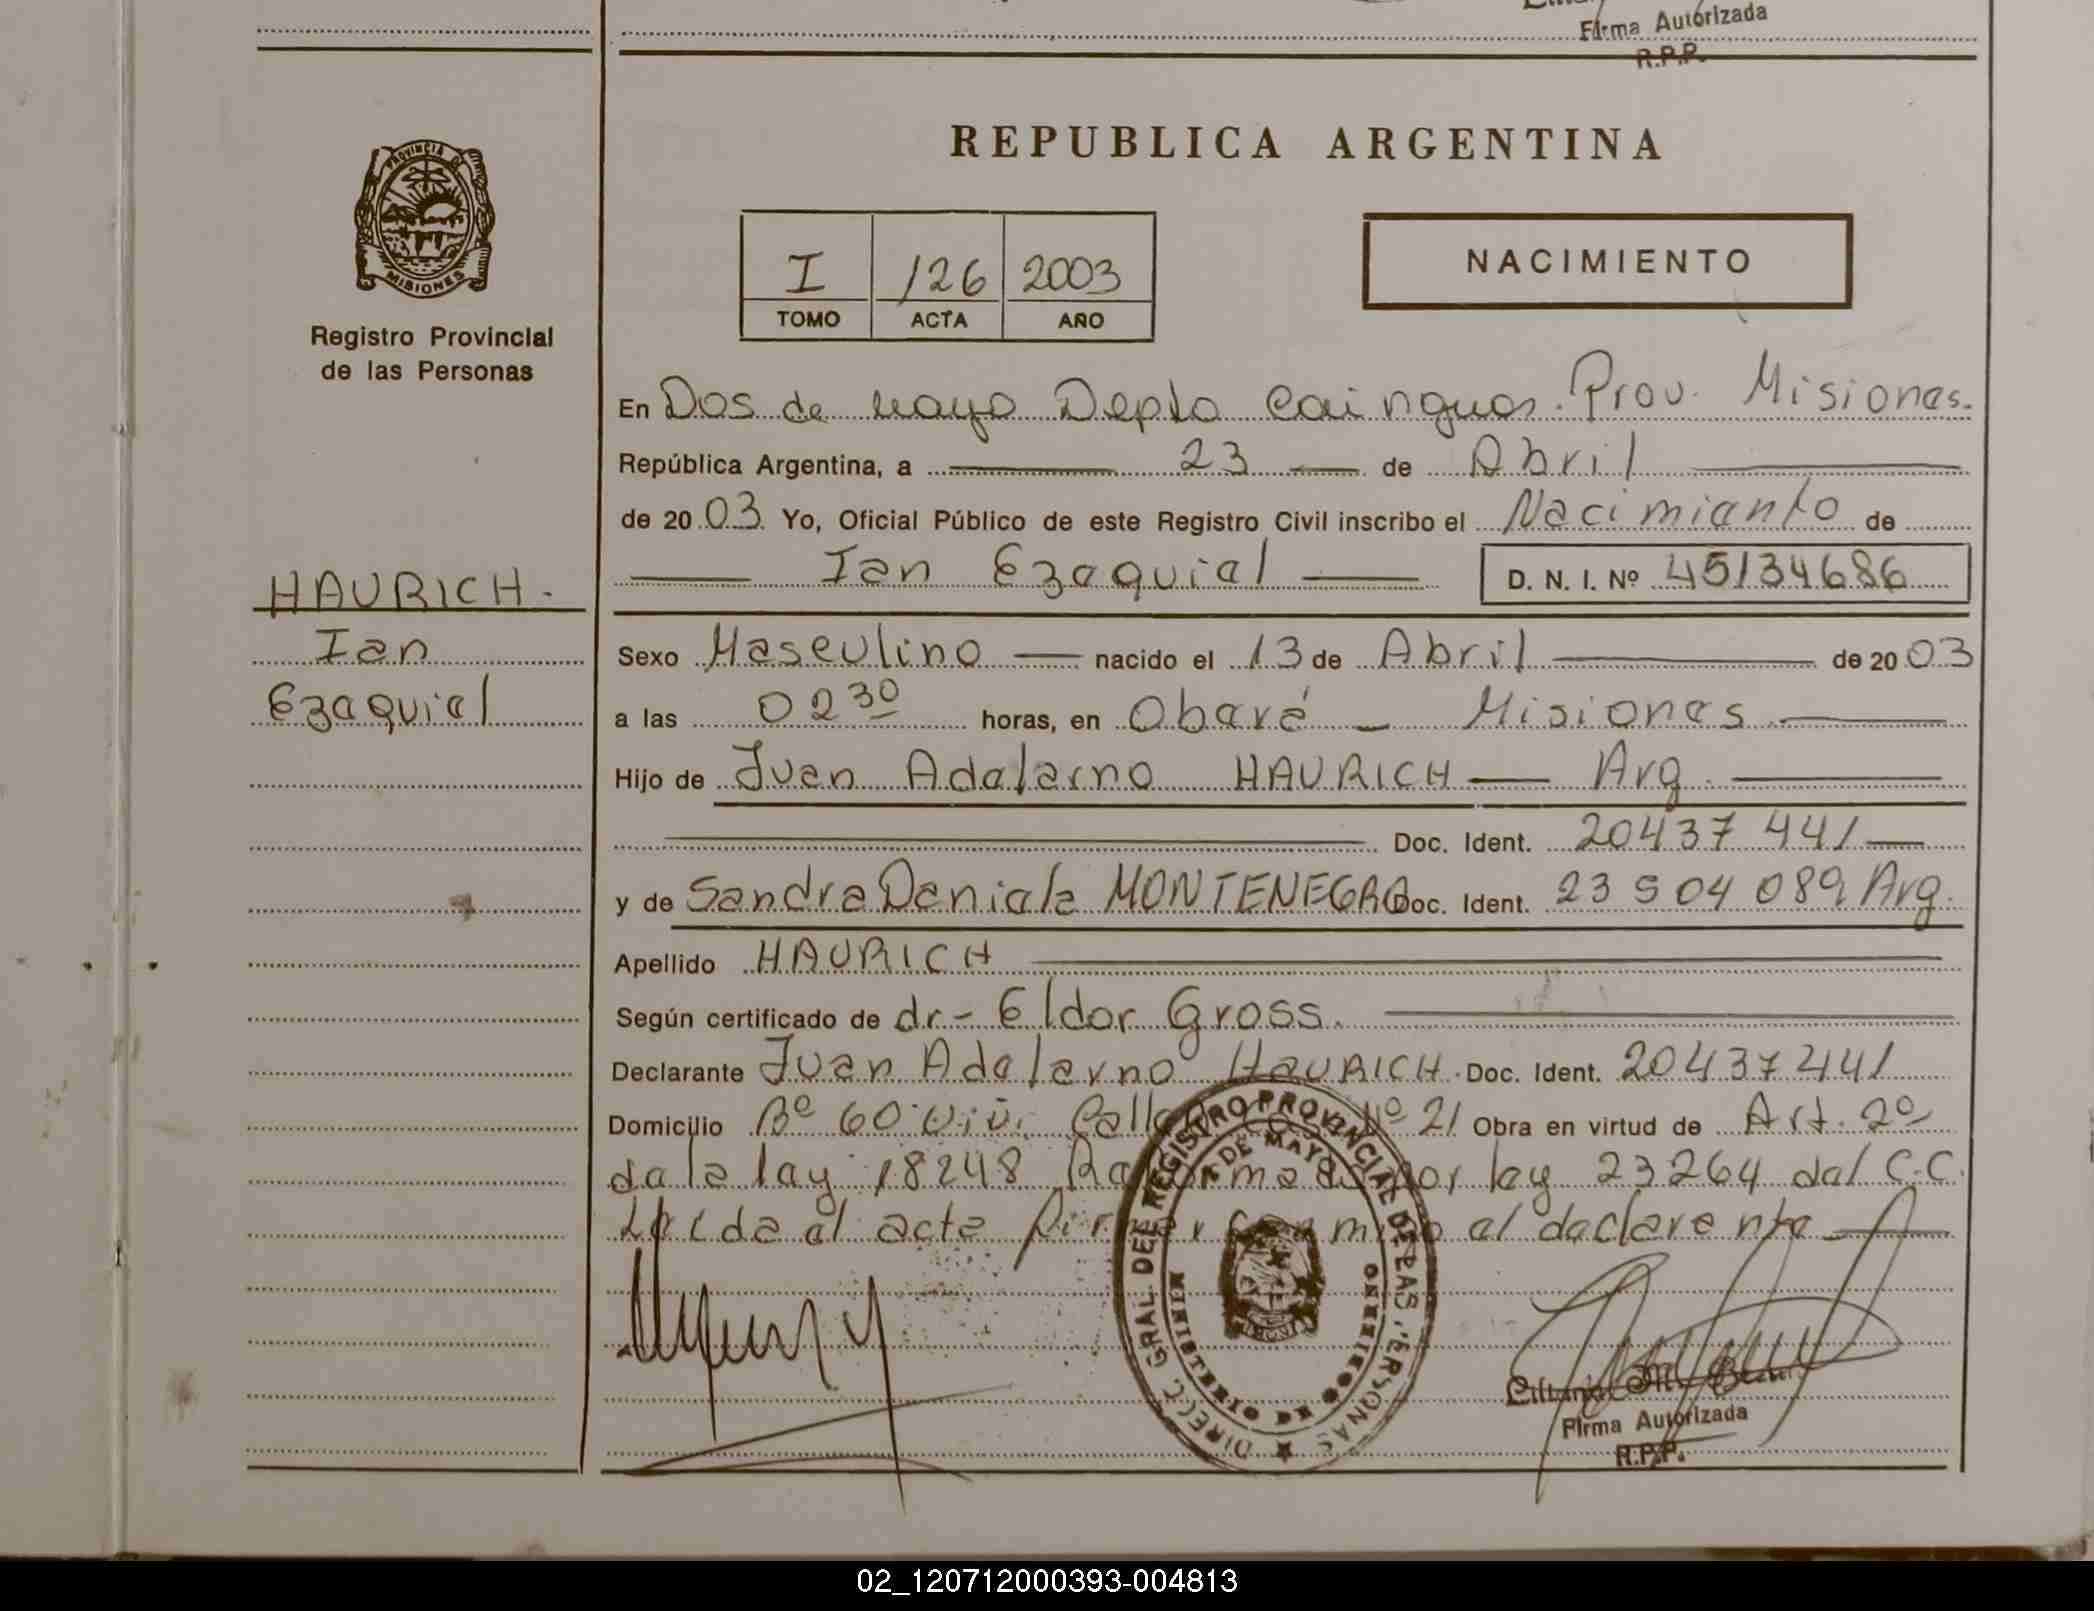 Firma Autorizada
R.P.P.
PROVINCIA DE
MISIONES
Registro Provincial
de las Personas
HAURICH.
Ian
Ezequiel
REPUBLICA ARGENTINA
I 126 2003
TOMO ACTA AÑO
NACIMIENTO
En Dos de Mayo Depto Cainguas. Prov. Misiones.
República Argentina, a 23 de Abril
de 20 03 Yo, Oficial Público de este Registro Civil inscribo el Nacimiento de
Ian Ezequiel D. N. I. Nº 45134686
Sexo Masculino nacido el 13 de Abril de 20 03
a las 02 30 horas, en Oberá - Misiones
Hijo de Juan Adelerno HAURICH Arg.
Doc. Ident. 20437441
y de Sandra Daniela MONTENEGRO Doc. Ident. 23504089 Arg.
Apellido HAURICH
Según certificado de dr- Eldor Gross.
Declarante Juan Adelerno HAURICH. Doc. Ident. 20437441
Domicilio Bº 60 viv. Calle Nº 21 Obra en virtud de Art. 2º
de la ley 18248 Reformado por ley 23264 del C.C.
Leída el acta firma conmigo el declarante
DIREC. GRAL. DEL REGISTRO PROVINCIAL DE LAS PERSONAS
2 DE MAYO
MINISTERIO DE GOBIERNO
Firma Autorizada
R.P.P.
02_120712000393-004813